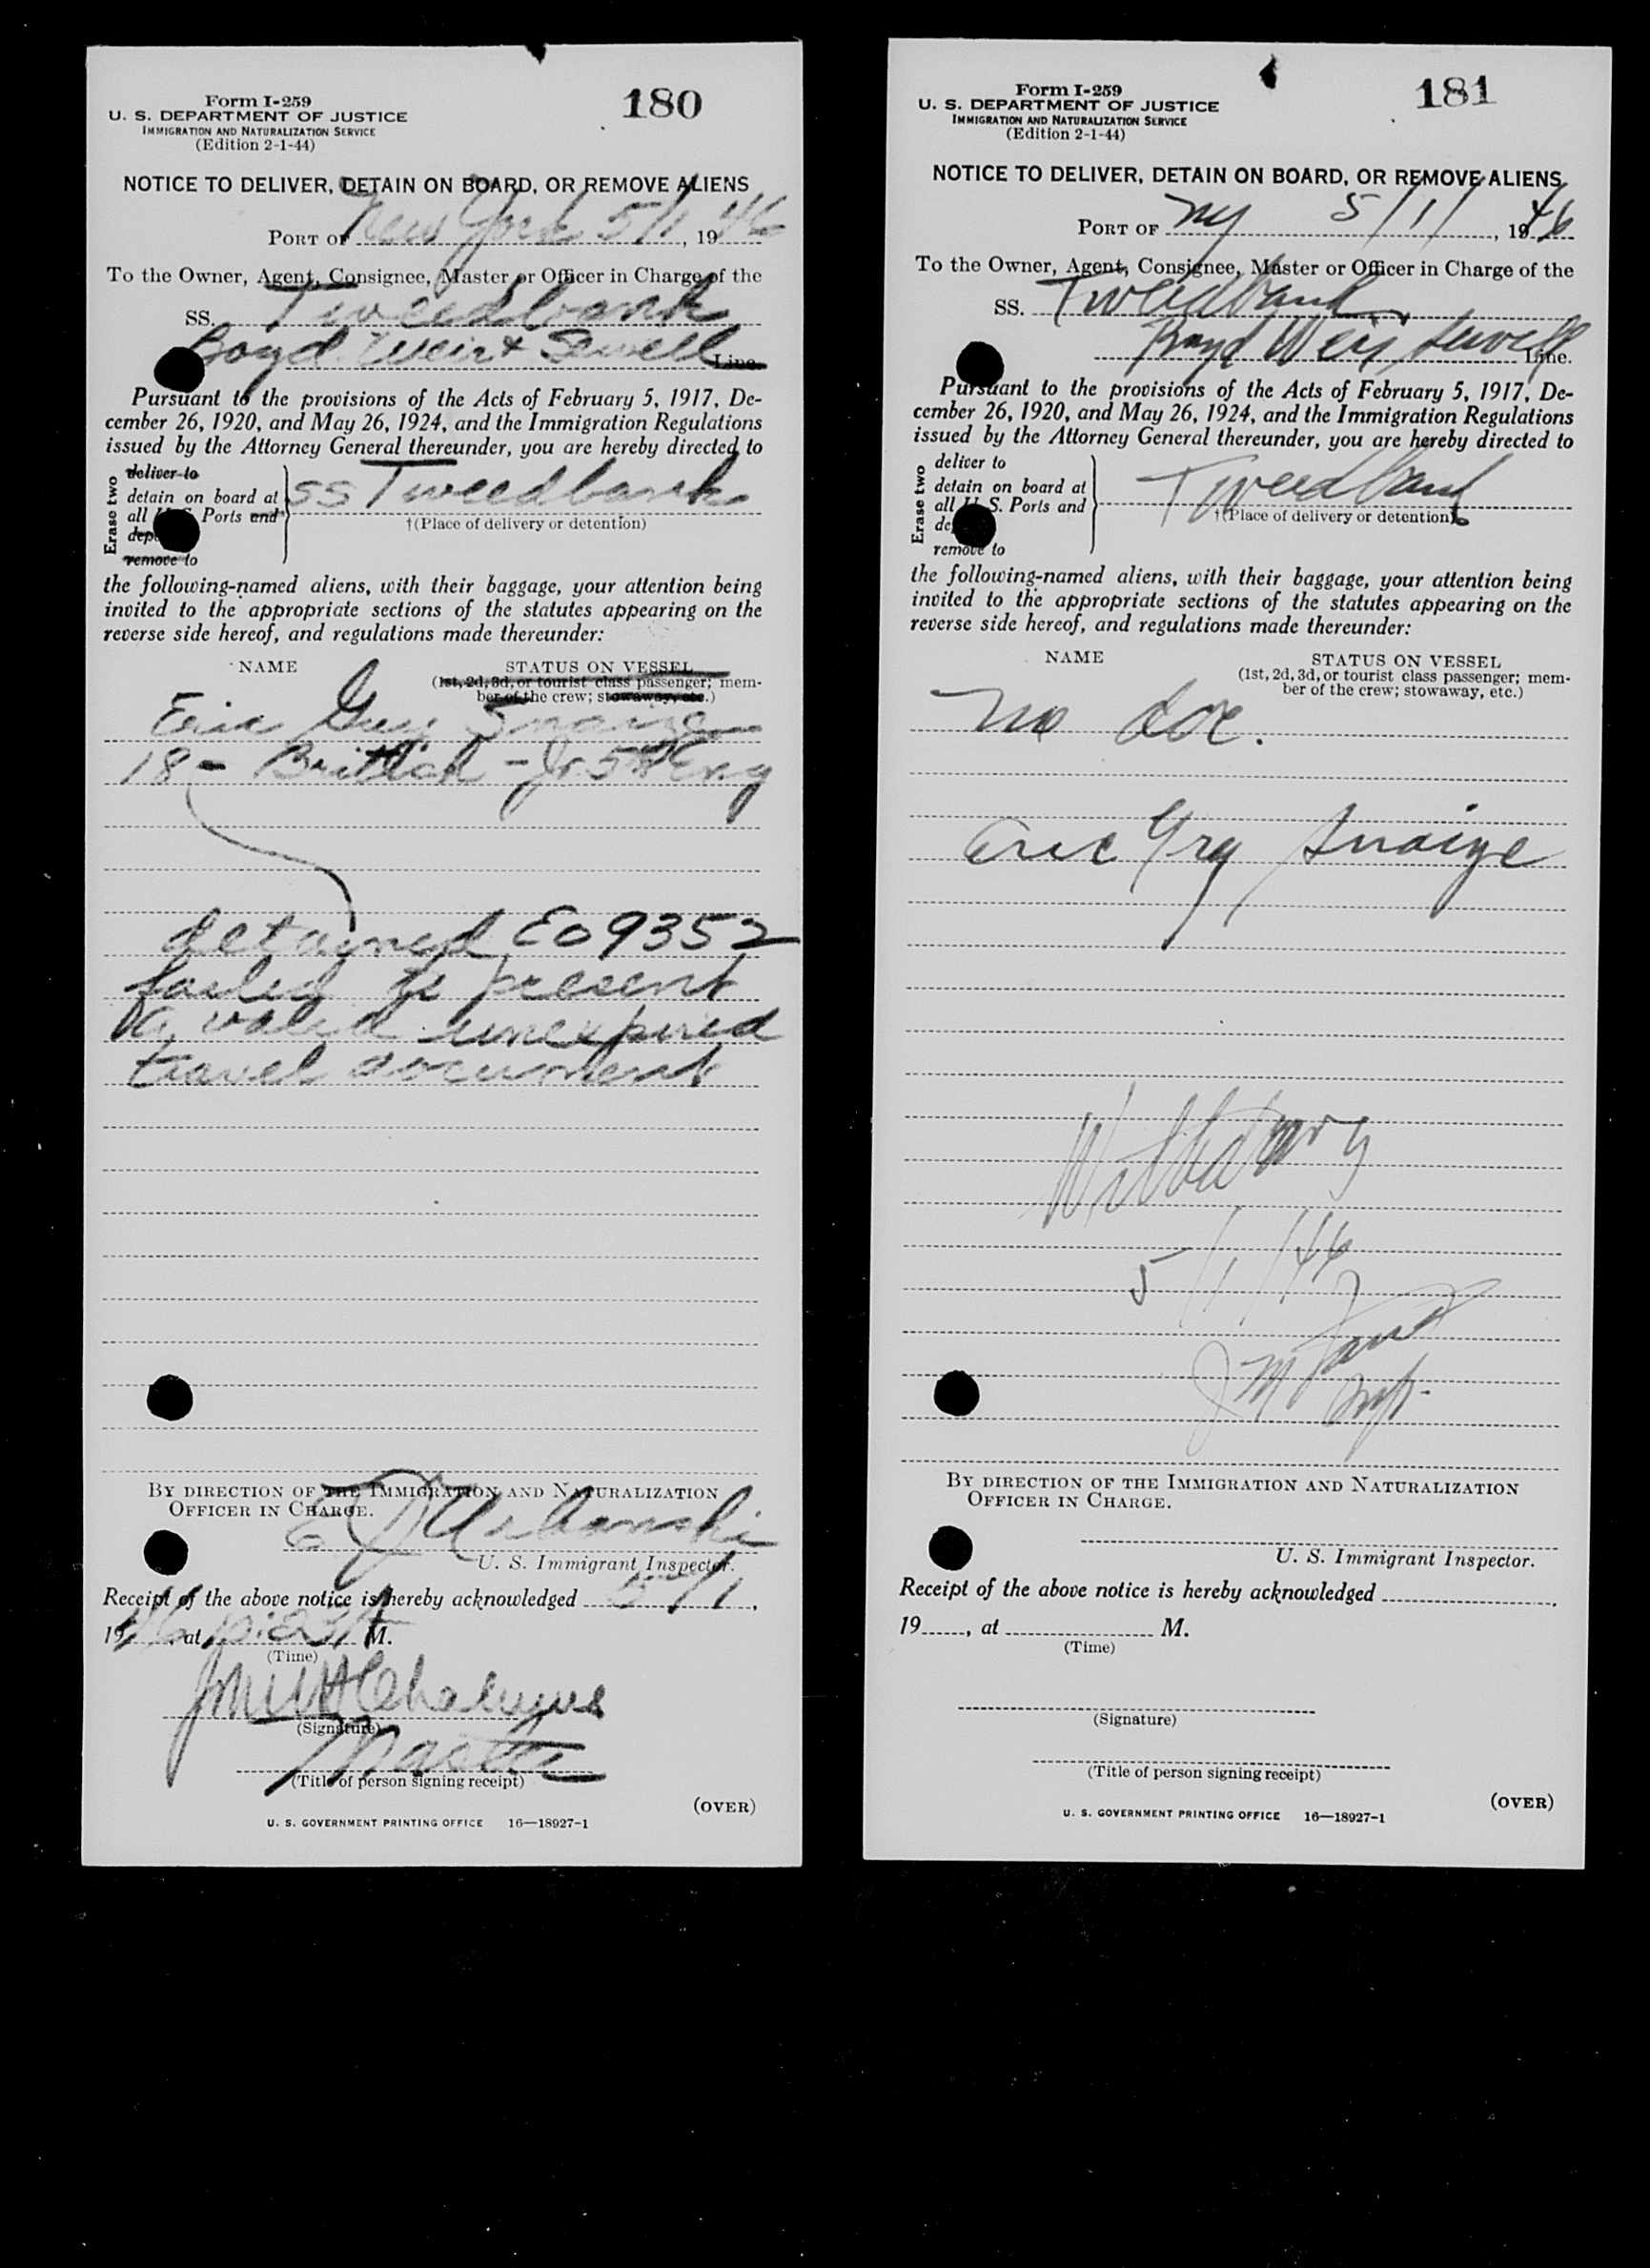 Form I-259
180
U. S. DEPARTMENT OF JUSTICE
IMMIGRATION AND NATURALIZATION SERVICE
(Edition 2-1-44)
NOTICE TO DELIVER, DETAIN ON BOARD, OR REMOVE ALIENS
PORT OF New York 5/1, 1946
To the Owner, Agent, Consignee, Master or Officer in Charge of the
SS. Tweedbank
Boyd Weir & Sewell Line.
Pursuant to the provisions of the Acts of February 5, 1917, De-
cember 26, 1920, and May 26, 1924, and the Immigration Regulations
issued by the Attorney General thereunder, you are hereby directed to
Erase two
deliver to
detain on board at
all U. S. Ports and
remove to
SS Tweedbank
†(Place of delivery or detention)
the following-named aliens, with their baggage, your attention being
invited to the appropriate sections of the statutes appearing on the
reverse side hereof, and regulations made thereunder:
NAME
STATUS ON VESSEL
(1st, 2d, 3d, or tourist class passenger; mem-
ber of the crew; stowaway, etc.)
Eric Guy Snaize
18 - British - Jr 5th Eng
detained EO 9352
failed to present
a valid unexpired
travel document
BY DIRECTION OF THE IMMIGRATION AND NATURALIZATION
OFFICER IN CHARGE.
U. S. Immigrant Inspector.
Receipt of the above notice is hereby acknowledged 5/1,
1946, at M.
(Time)
(Signature)
Master
(Title of person signing receipt)
(OVER)
U. S. GOVERNMENT PRINTING OFFICE 16—18927-1
Form I-259
181
U. S. DEPARTMENT OF JUSTICE
IMMIGRATION AND NATURALIZATION SERVICE
(Edition 2-1-44)
NOTICE TO DELIVER, DETAIN ON BOARD, OR REMOVE ALIENS
PORT OF NY 5/1/, 1946
To the Owner, Agent, Consignee, Master or Officer in Charge of the
SS. Tweedbank
Boyd Weir Sewell Line.
Pursuant to the provisions of the Acts of February 5, 1917, De-
cember 26, 1920, and May 26, 1924, and the Immigration Regulations
issued by the Attorney General thereunder, you are hereby directed to
Erase two
deliver to
detain on board at
all U. S. Ports and
remove to
Tweedbank
†(Place of delivery or detention)
the following-named aliens, with their baggage, your attention being
invited to the appropriate sections of the statutes appearing on the
reverse side hereof, and regulations made thereunder:
NAME
STATUS ON VESSEL
(1st, 2d, 3d, or tourist class passenger; mem-
ber of the crew; stowaway, etc.)
No doc.
Eric Snaize
5/1/46
BY DIRECTION OF THE IMMIGRATION AND NATURALIZATION
OFFICER IN CHARGE.
U. S. Immigrant Inspector.
Receipt of the above notice is hereby acknowledged
19, at M.
(Time)
(Signature)
(Title of person signing receipt)
(OVER)
U. S. GOVERNMENT PRINTING OFFICE 16—18927-1